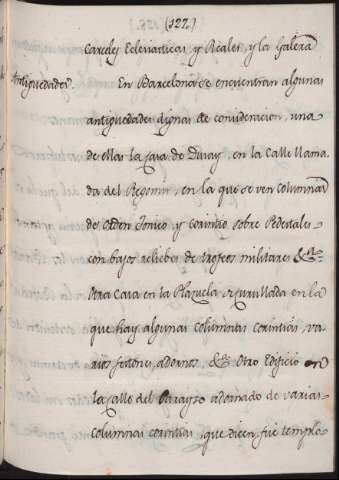 (127.)
Carceles Eclesiasticas y Reales, y la Galera
Antiguedades.
En Barcelona se encuentran algunas
antiguedades dignas de consideracion, una
de ellas la Casa de, en la Calle llama-
da del Regomir, en la que se ven columnas
de Orden Jonico y corintio sobre Pedestales
con bajos reliebes de trofeos militares &a
Otra Casa en la Plazuela en la
que hay algunas columnas corintias, va-
rios festones, adornos, &a Otro Edificio en
la Calle del Parayso adornado de varias
columnas corintias, que dicen fue templo